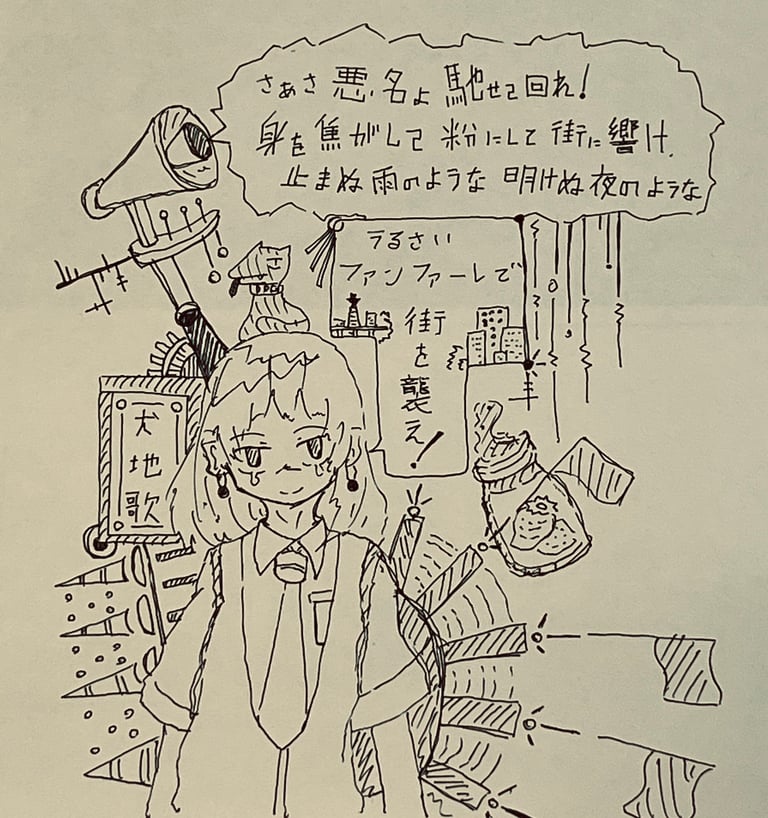 さぁさ悪名よ馳せて回れ!
身を焦がして粉にして街に響け、
止まぬ雨のような明けぬ夜のような
うるさい
ファンファーレで
街を襲え!
大地歌